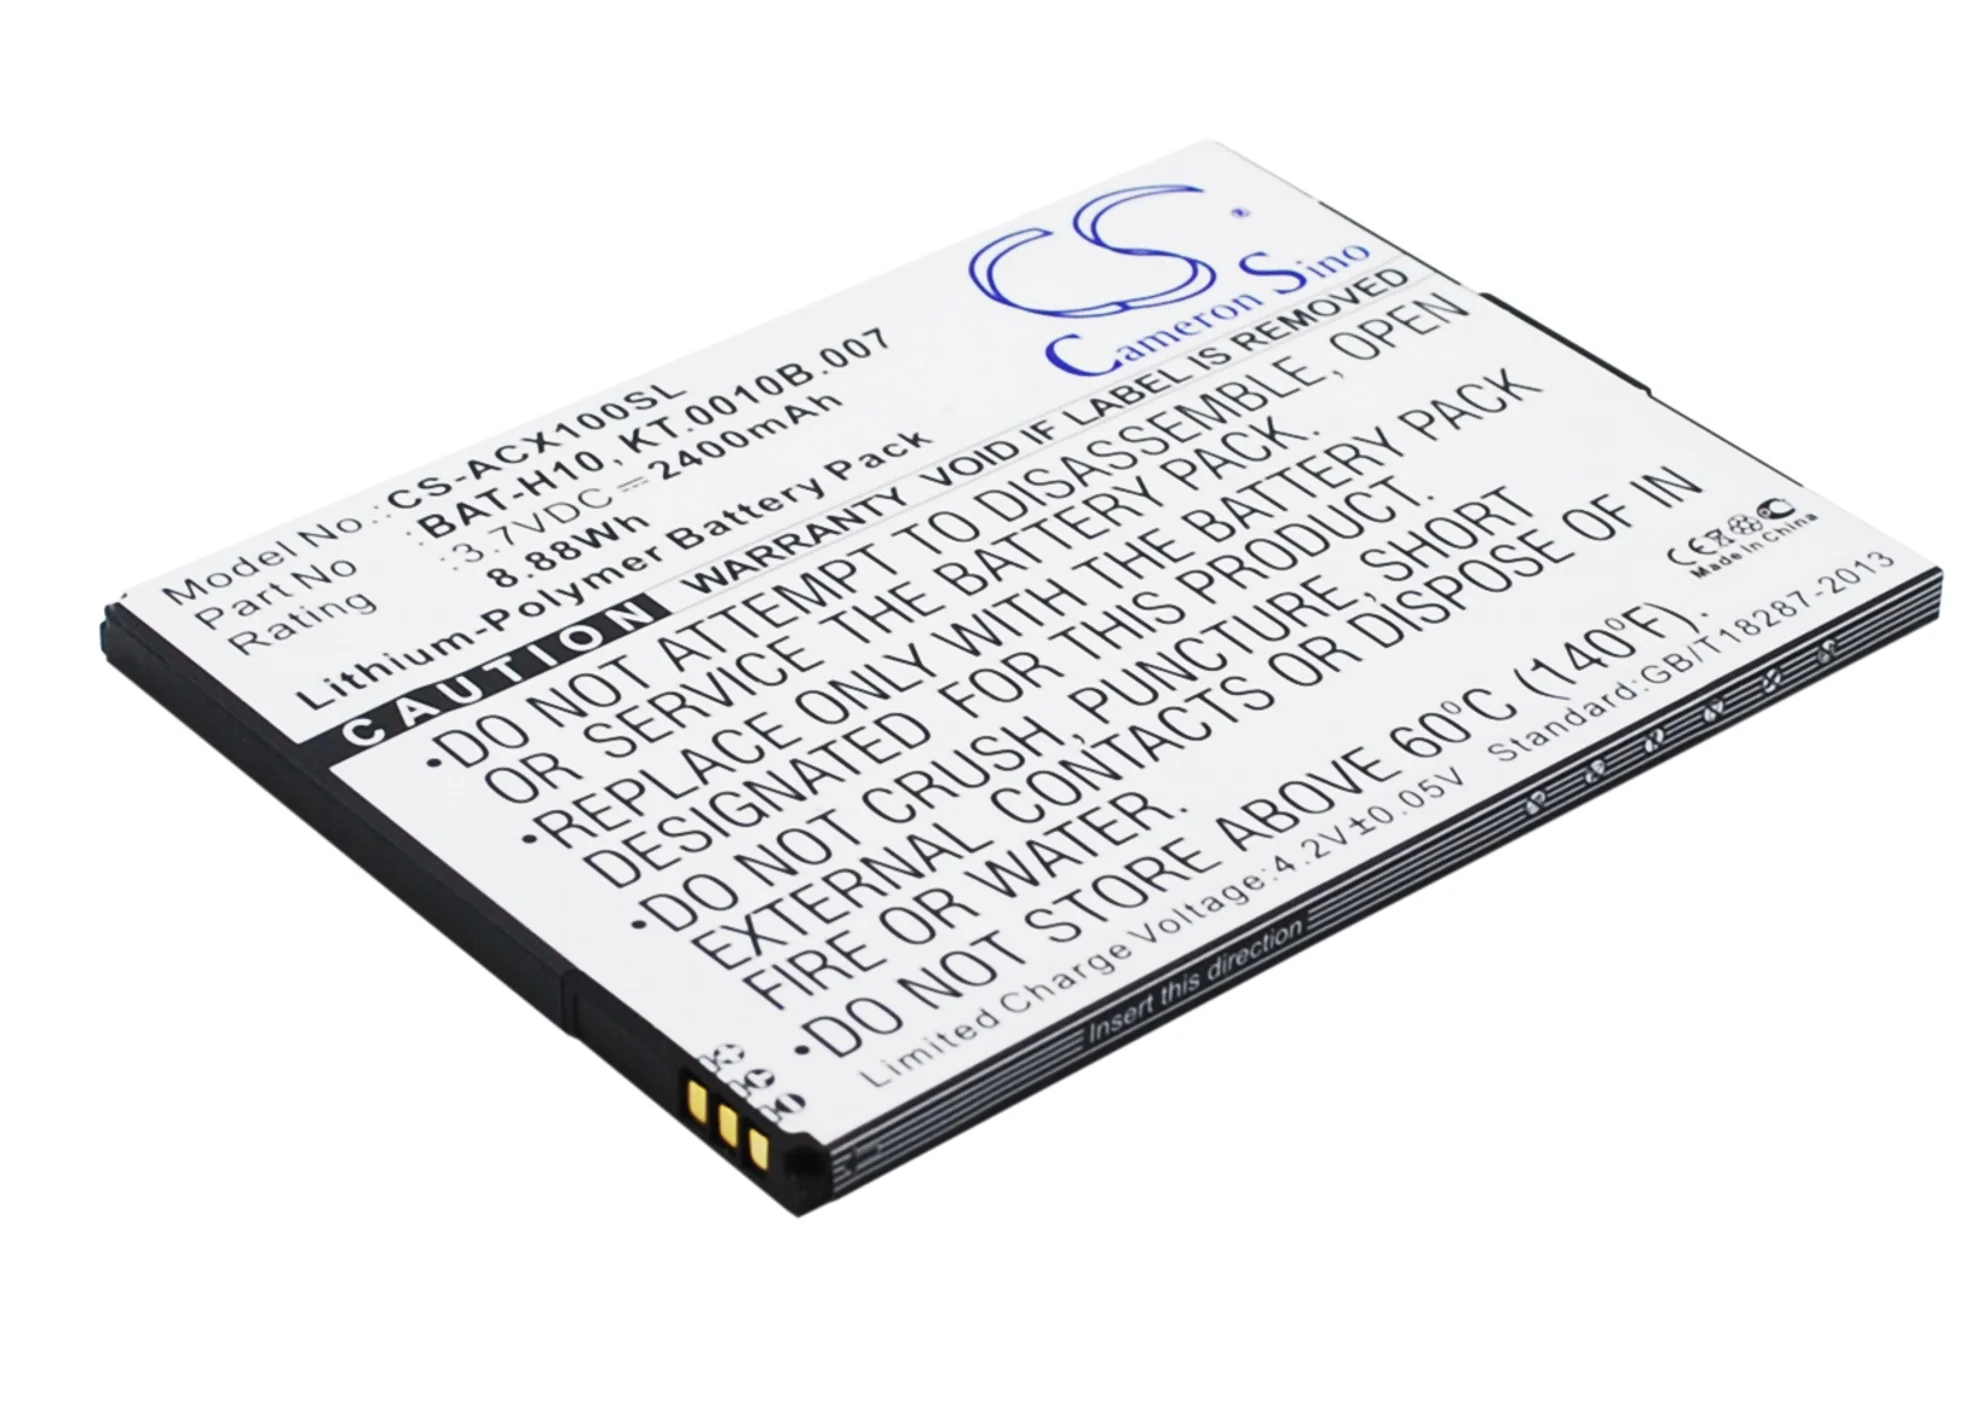 CS®
Cameron Sino
Model No.: CS-ACX100SL
Part No : BAT-H10, KT.0010B.007
Rating : 3.7VDC⎓2400mAh
8.88Wh
Lithium-Polymer Battery Pack
CAUTION WARRANTY VOID IF LABEL IS REMOVED
•DO NOT ATTEMPT TO DISASSEMBLE, OPEN
OR SERVICE THE BATTERY PACK.
•REPLACE ONLY WITH THE BATTERY PACK
DESIGNATED FOR THIS PRODUCT.
•DO NOT CRUSH, PUNCTURE, SHORT
EXTERNAL CONTACTS OR DISPOSE OF IN
FIRE OR WATER.
•DO NOT STORE ABOVE 60°C (140°F).
CE
Made in China
Limited Charge Voltage:4.2V±0.05V Standard:GB/T18287-2013
Insert this direction